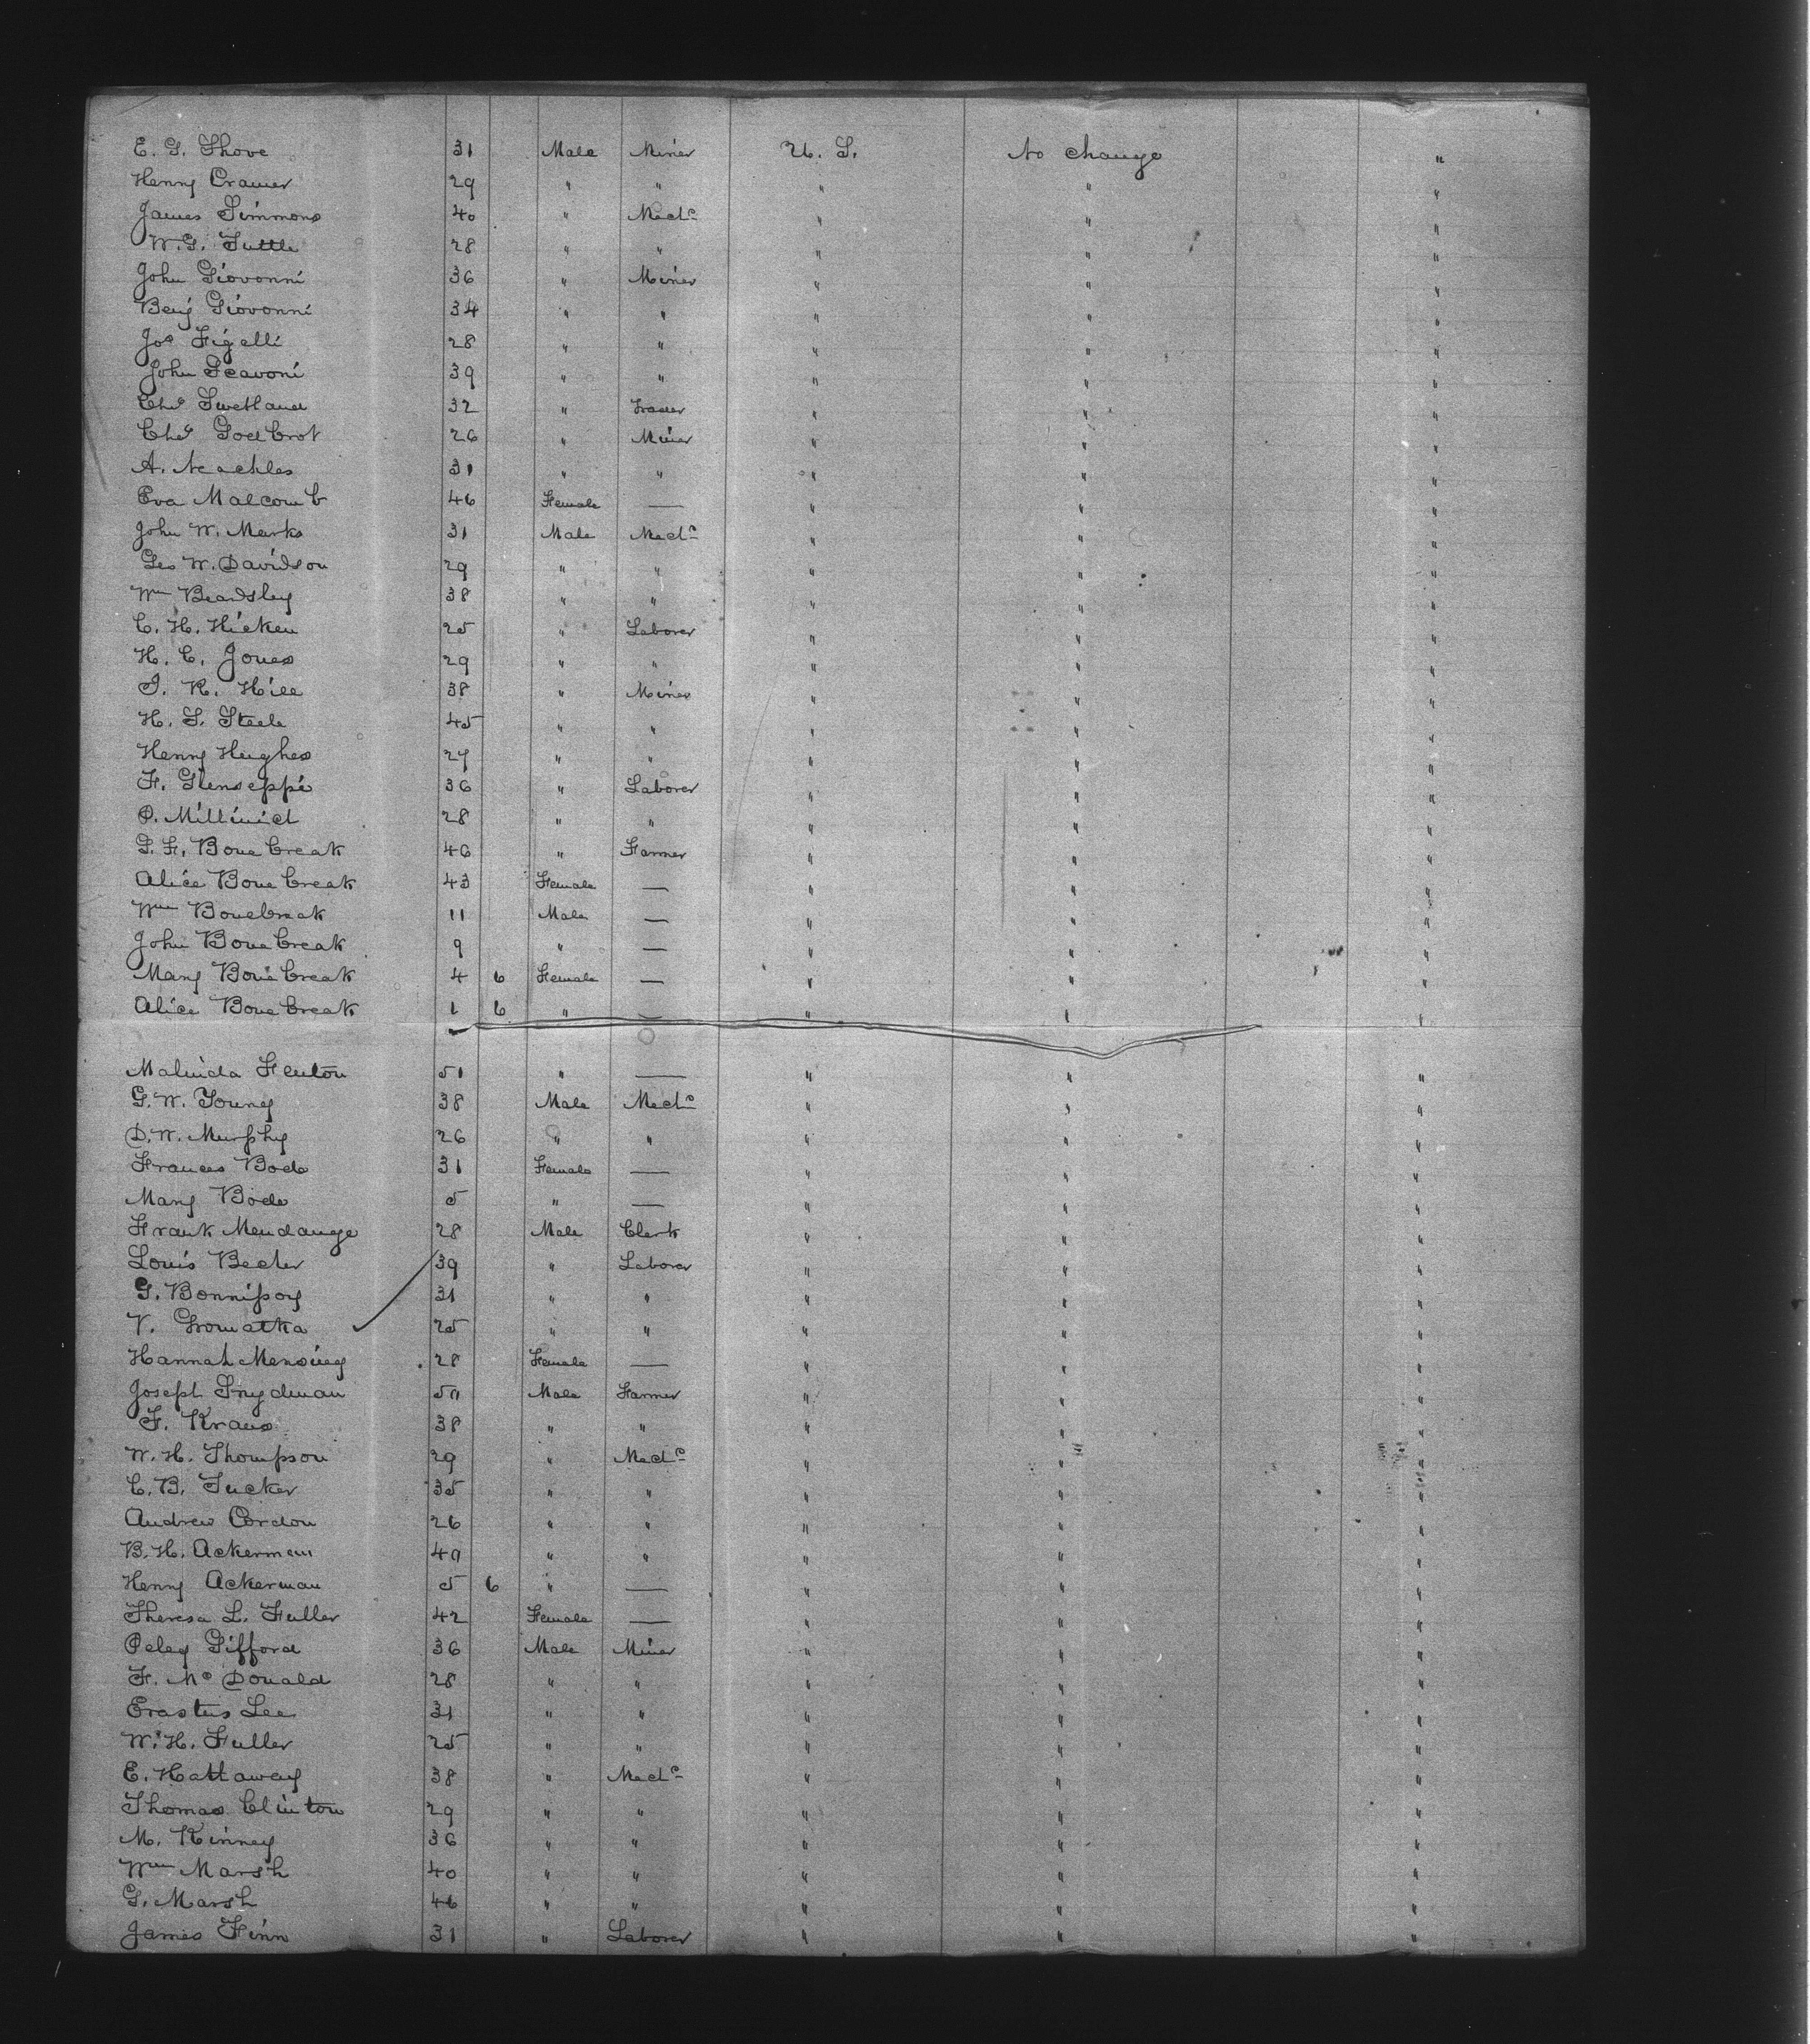 E. G. Shove 31 Male Miner U. S. No change "
Henry Cramer 29 " " " " "
James Simmons 40 " Mechc " " "
W. G. Tuttle 28 " " " " "
John Giovonni 36 " Miner " " "
Benj Giovonni 34 " " " " "
Jos Figelli 28 " " " " "
John Scavoni 39 " " " " "
Chs Swetland 32 " Trader " " "
Chs 26 " Miner " " "
A. 31 " " " " "
Eva Malcomb 46 Female — " " "
John W. Marks 31 Male Mechc " " "
Geo W. Davidson 29 " " " " "
Wm Beardsley 38 " " " " "
C. H. Hicken 25 " Laborer " " "
H. C. Jones 29 " " " " "
I. K. Hill 38 " Miner " " "
H. S. Steele 45 " " " " "
Henry Hughes 27 " " " " "
F. Gienseppi 36 " Laborer " " "
P. 28 " " " " "
G. F. Bonebreak 46 " Farmer " " "
Alice Bonebreak 43 Female — " " "
Wm Bonebreak 11 Male — " " "
John Bonebreak 9 " — " " "
Mary Bonebreak 4 6 Female — " " "
Alice Bonebreak 1 6 " — " " "
Malinda Fenton 51 " — " " "
G. W. Young 38 Male Mechc " " "
D. W. Murphy 26 " " " " "
Frances Bode 31 Female — " " "
Mary Bode 5 " — " " "
Frank Mendange 28 Male Clerk " " "
Louis Becher 39 " Laborer " " "
G. Bonnissoy 31 " " " " "
V. Gromatka 25 " " " " "
Hannah Mensing 28 Female — " " "
Joseph Frydman 50 Male Farmer " " "
F. Kraus 38 " " " " "
W. H. Thompson 29 " Mechc " " "
C. B. Tucker 35 " " " " "
Andrew Cordon 26 " " " " "
B. H. Ackerman 40 " " " " "
Henry Ackerman 5 6 " — " " "
Theresa L. Fuller 42 Female — " " "
Peleg Gifford 36 Male Miner " " "
F. McDonald 28 " " " " "
Erastus Lee 31 " " " " "
W. H. Fuller 25 " " " " "
E. Hattaway 38 " Mechc " " "
Thomas Clinton 29 " " " " "
M. Kinney 36 " " " " "
Wm Marsh 40 " " " " "
G. Marsh 46 " " " " "
James Finn 31 " Laborer " " "